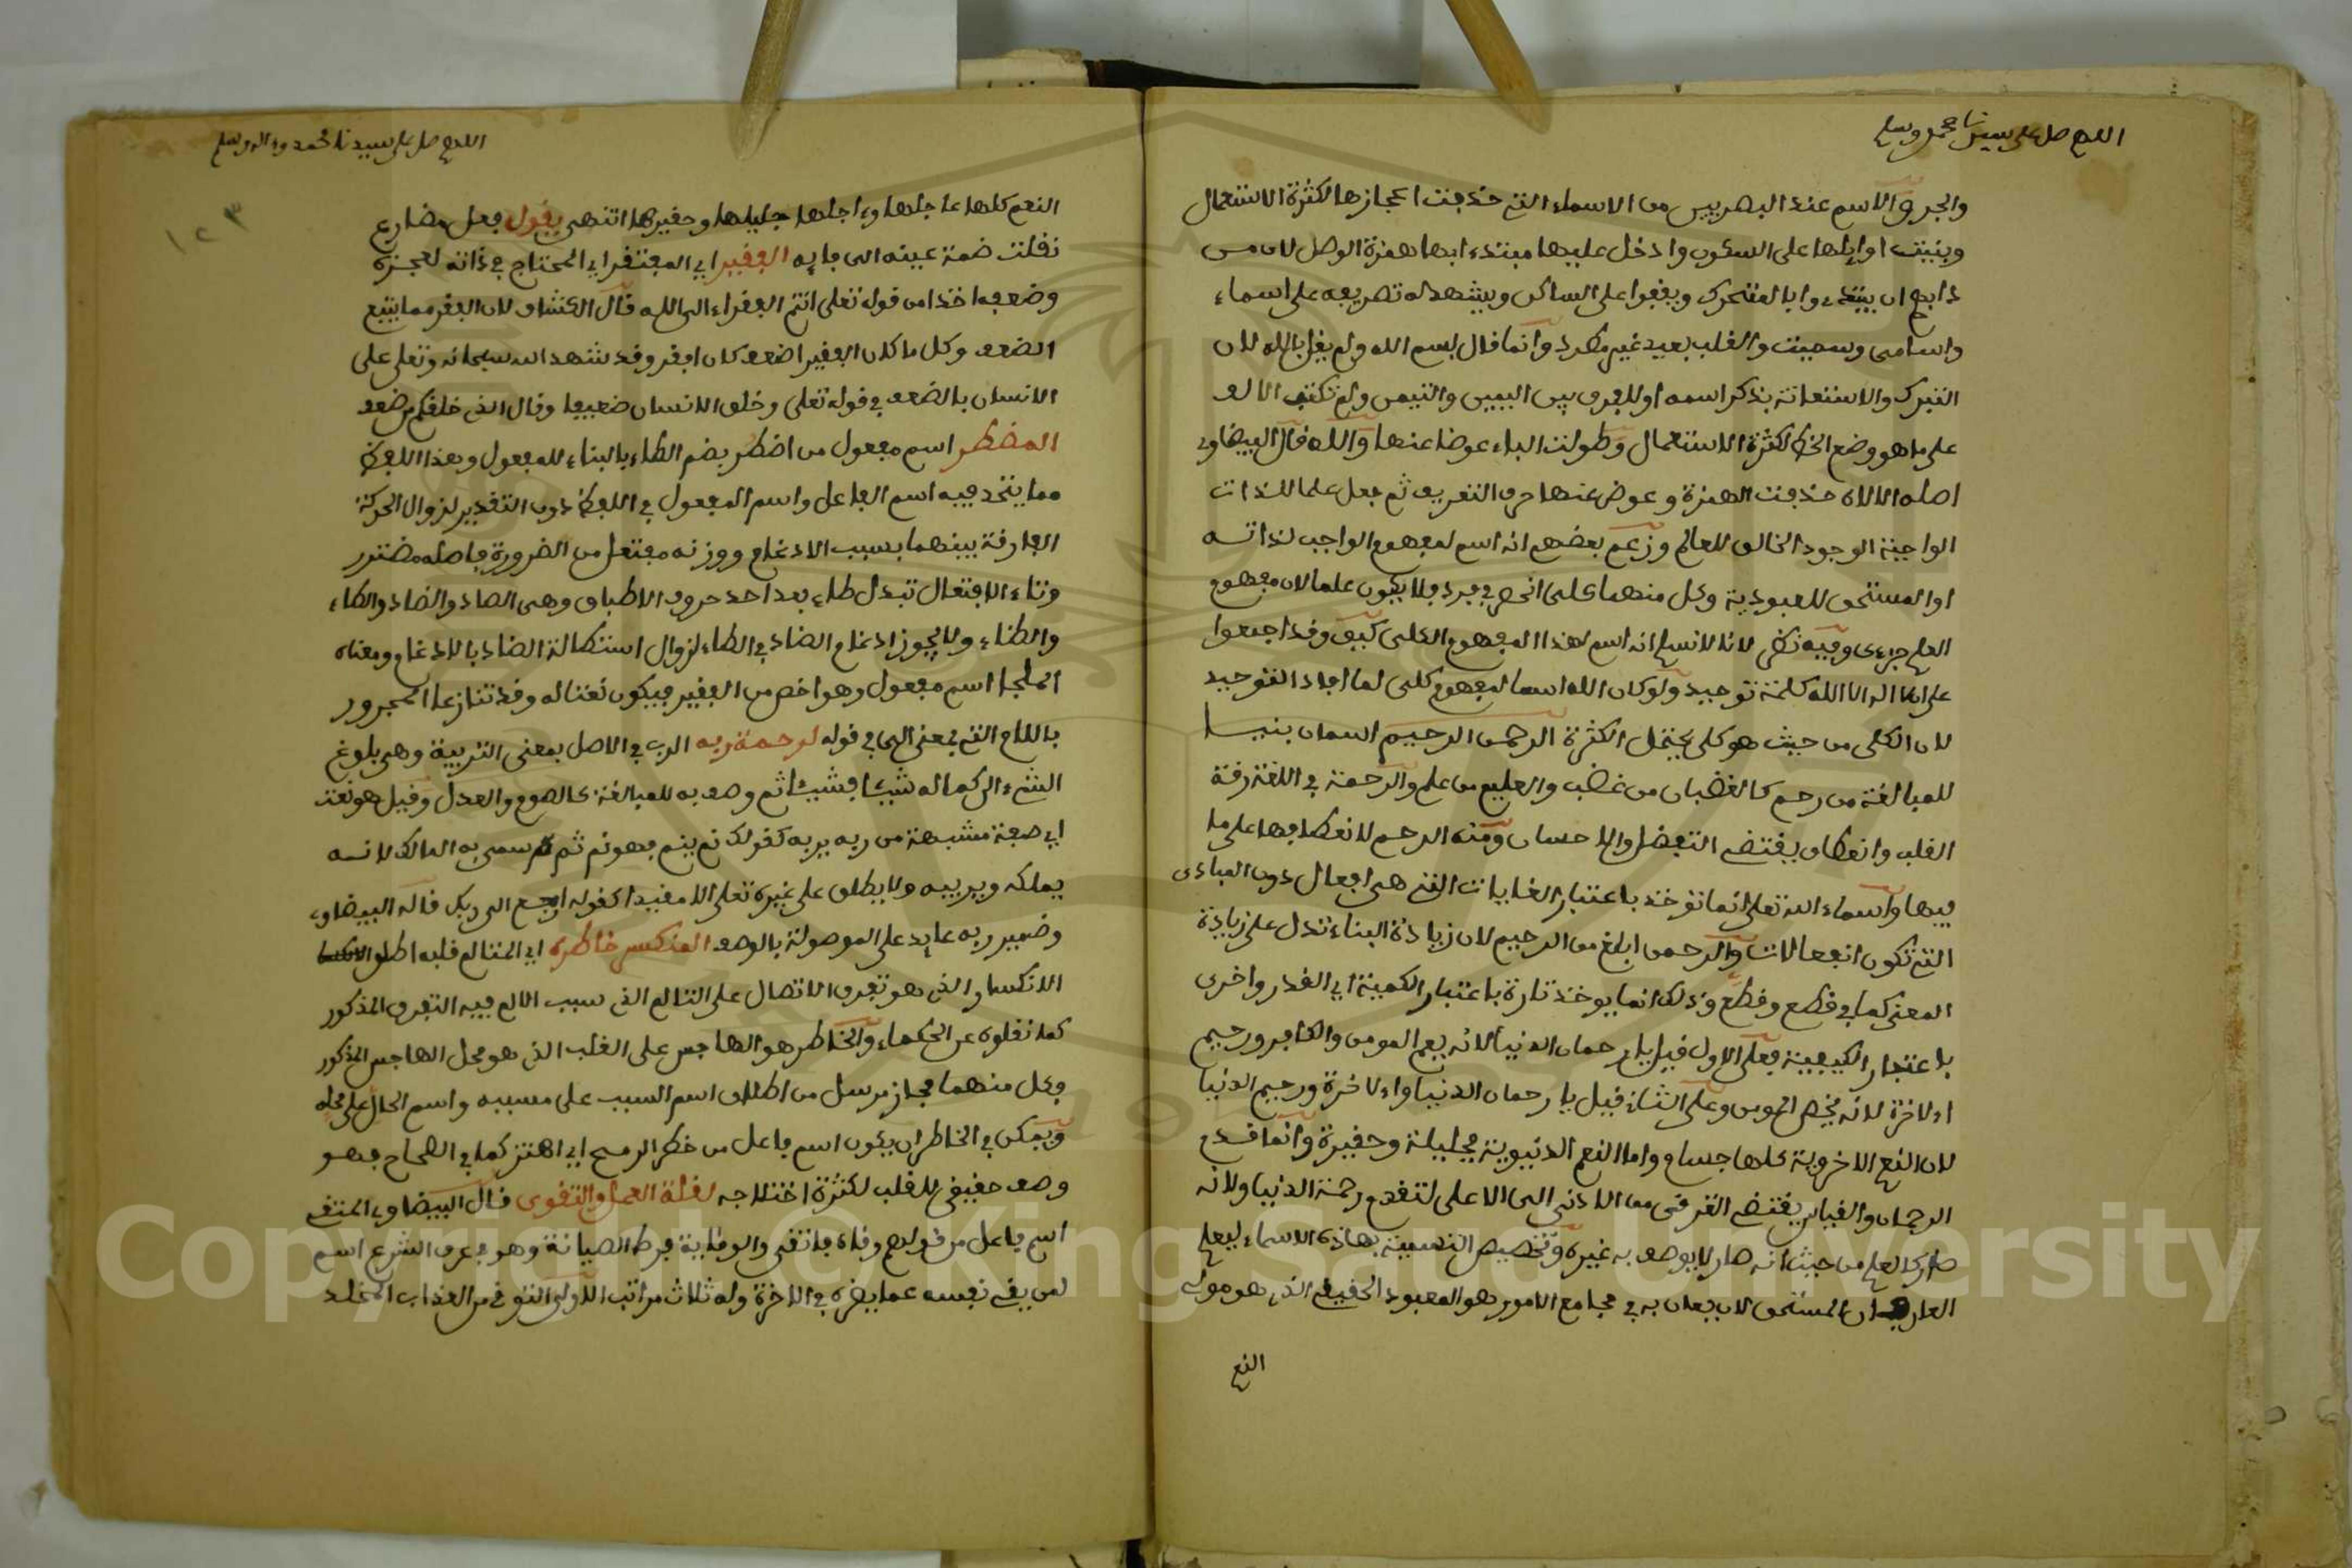 اللهم صل على سيدنا محمد وسلم
والجر والاسم عند البصريين من الاسماء التي حذفت اعجازها لكثرة الاستعمال
وبنيت اوايلها على السكون وادخل عليها مبتدءا بها همزة الوصل لان من
دابهم ان يبتدءوا بالمتحرك ويقفوا على الساكن ويشهد له تصريفه على اسماء
واسامى وسميت والقلب بعيد غير مطرد وانما قال بسم الله ولم يقل بالله لان
التبرك والاستعانة بذكر اسمه او للفرق بين اليمين والتيمن ولم تكتب الالف
على ما هو وضع الخط لكثرة الاستعمال وطولت الباء عوضا عنها والله قال البيضاوي
اصله الالاه حذفت الهمزة وعوض عنها حرف التعريف ثم جعل علما للذات
الواجبة الوجود الخالق للعالم وزعم بعضهم انه اسم لمفهوم الواجب لذاته
او المستحق للعبودية وكل منهما كلى انحصر في فرد فلا يكون علما لان مفهوم
العلم جزءى وفيه نظر لانا لا نسلم انه اسم لهذا المفهوم الكلى كيف وقد اجمعوا
على ان لا اله الا الله كلمة توحيد ولو كان الله اسما لمفهوم كلى لما افاد التوحيد
لان الكلى من حيث هو كلى يحتمل الكثرة الرحمن الرحيم اسمان بنيا
للمبالغة من رحم كالغضبان من غضب والعليم من علم والرحمة في اللغة رقة
القلب وانعطاف يقتضى التفضل والاحسان ومنه الرحم لانعطافها على ما
فيها واسماء الله تعلى انما توخذ باعتبار الغايات التي هى افعال دون المبادى
التي تكون انفعالات والرحمن ابلغ من الرحيم لان زيادة البناء تدل على زيادة
المعنى كما في قطع وقطع وذلك انما يوخذ تارة باعتبار الكمية اي القدر واخرى
باعتبار الكيفية فعلى الاول قيل يا رحمان الدنيا لانه يعم المومن والكافر ورحيم
الاخرة لانه يخص المومن وعلى الثاني قيل يا رحمان الدنيا والاخرة ورحيم الدنيا
لان النعم الاخروية كلها جسام واما النعم الدنيوية فجليلة وحقيرة وانما قدم
الرحمان والقياس يقتضى الترقى من الادنى الى الاعلى لتقدم رحمة الدنيا ولانه
صار كالعلم من حيث انه صار لا يوصف به غيره وتخصيص التسمية بهاذه الاسماء ليعلم
العارف ان المستحق لان يعان به في مجامع الامور هو المعبود الحقيقي الذي هو مولى
النعم
اللهم صل على سيدنا محمد وءاله وسلم
١٢٣
النعم كلها عاجلها وءاجلها جليلها وحقيرها انتهى يقول فعل مضارع
نقلت ضمة عينه الى فايه الفقير اي المفتقر اي المحتاج في ذاته لعجزه
وضعفه اخذا من قوله تعلى انتم الفقراء الى الله قال الكشاف لان الفقر مما يتبع
الضعف وكل ما كان الفقير اضعف كان افقر وقد شهد الله سبحانه وتعلى على
الانسان بالضعف في قوله تعلى وخلق الانسان ضعيفا وقال الذي خلقكم من ضعف
المضطر اسم مفعول من اضطر بضم الطاء بالبناء للمفعول وهذا اللفظ
مما يتحد فيه اسم الفاعل واسم المفعول في اللفظ دون التقدير لزوال الحركة
الفارقة بينهما بسبب الادغام ووزنه مفتعل من الضرورة فاصله مضترر
وتاء الافتعال تبدل طاء بعد احد حروف الاطباق وهى الصاد والضاد والطاء
والظاء ولا يجوز ادغام الضاد في الطاء لزوال استطالة الضاد بالادغام ومعناه
الملجا اسم مفعول وهو اخص من الفقير فيكون نعتا له وقد تنازعا المجرور
باللام التي بمعنى الى في قوله لرحمة ربه الرب في الاصل بمعنى التربية وهى بلوغ
الشيء الى كماله شيئا فشيئا ثم وصف به للمبالغة كالصوم والعدل وقيل هو نعت
اي صفة مشبهة من ربه يربه كقولك نم ينم فهو نم ثم سمى به المالك لانه
يملكه ويربيه ولا يطلق على غيره تعلى الا مقيدا كقوله ارجع الى ربك قاله البيضاوي
وضمير ربه عايد على الموصولة بالوصف المنكسر خاطره اي المتالم قلبه اطلق
الانكسار الذي هو تفرق الاتصال على التالم الذي سبب الالم فيه التفرق المذكور
كما نقلوه عن الحكماء والخاطر هو الهاجس على القلب الذي هو محل الهاجس المذكور
وكل منهما مجاز مرسل من اطلاق اسم السبب على مسببه واسم الحال على محله
ويمكن في الخاطر ان يكون اسم فاعل من خطر الرمح اي اهتز كما في الصحاح فهو
وصف حقيقي للقلب لكثرة اختلاجه لقلة العمل والتقوى قال البيضاوي المتقي
اسم فاعل من قولهم وقاه فاتقى والوقاية فرط الصيانة وهو في عرف الشرع اسم
لمن يقي نفسه عما يضره في الاخرة وله ثلاث مراتب الاولى التوقي من العذاب المخلد
Copyright © King Saud University